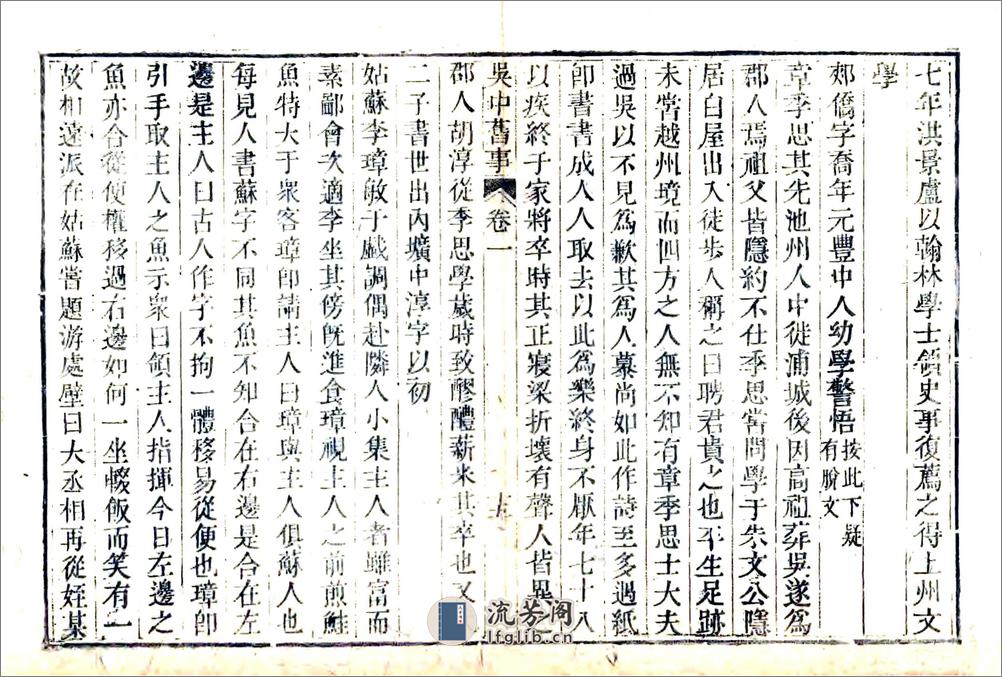 七年洪景盧以翰林學士領史事復薦之得上州文
學
郟僑字喬年元豐中人幼學警悟按此下疑有脫文
章季思其先池州人中徙浦城後因高祖葬吳遂為
郡人焉祖父皆隱約不仕季思嘗問學于朱文公隱
居白屋出入徒步人稱之曰聘君貴之也平生足跡
未嘗越州境而四方之人無不知有章季思士大夫
過吳以不見為歉其為人慕尚如此作詩至多遇紙
卽書書成人人取去以此為樂終身不厭年七十八
以疾終于家將卒時其正寢梁折壞有聲人皆異
吳中舊事 卷一 十五
郡人胡淳從季思學歲時致醪醴薪米其卒也又
二子書世出內壙中淳字以初
姑蘇李璋敏于戲調偶赴隣人小集主人者雖富而
素鄙會次適李坐其傍旣進食璋視主人之前煎鮭
魚特大于衆客璋卽請主人曰璋與主人俱蘇人也
每見人書蘇字不同其魚不知合在右邊是合在左
邊是主人曰古人作字不拘一體移易從便也璋卽
引手取主人之魚示衆曰領主人指揮今日左邊之
魚亦合從便權移過右邊如何一坐輟飯而笑有一
故相遠派在姑蘇嘗題游處壁曰大丞相再從姪某
流芳阁
lfglib.cn